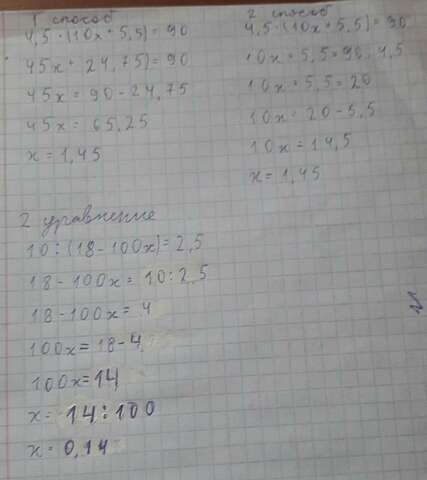 1 способ
4,5·(10x+5,5)=90
45x+24,75)=90
45x=90-24,75
45x=65,25
x=1,45
2 способ
4,5·(10x+5,5)=90
10x+5,5=90:4,5
10x+5,5=20
10x=20-5,5
10x=14,5
x=1,45
2 уравнение
10:(18-100x)=2,5
18-100x=10:2,5
18-100x=4
100x=18-4
100x=14
x=14:100
x=0,14